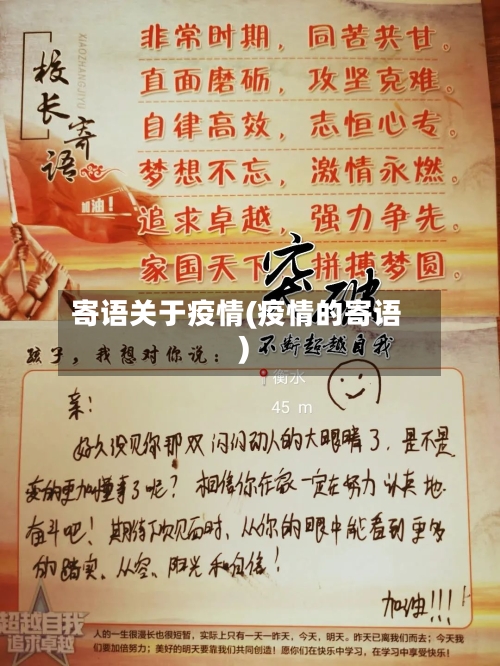 校长寄语
XIAOZHANGJIYU
加油！
非常时期，同苦共甘。
直面磨砺，攻坚克难。
自律高效，志恒心专。
梦想不忘，激情永燃。
追求卓越，强力争先。
家国天下，拼搏梦圆。
突破
不断超越自我
寄语关于疫情(疫情的寄语
)
孩子，我想对你说：
衡水
45 m
亲：
好久没见你那双闪闪动人的大眼睛了，是不是
变的更加懂事了呢？相信你在家一定在努力认真地
奋斗吧！期待下次见面时，从你的眼中能看到更多
的踏实、从容、阳光和自信！
加油!!!
超越自我
追求卓越
人的一生很漫长也很短暂，实际上只有一天一昨天，今天，明天。昨天已离我们而去；今天我
们要加倍努力；美好的明天要靠我们共同创造！愿你们在快乐中学习，在学习中享受快乐！